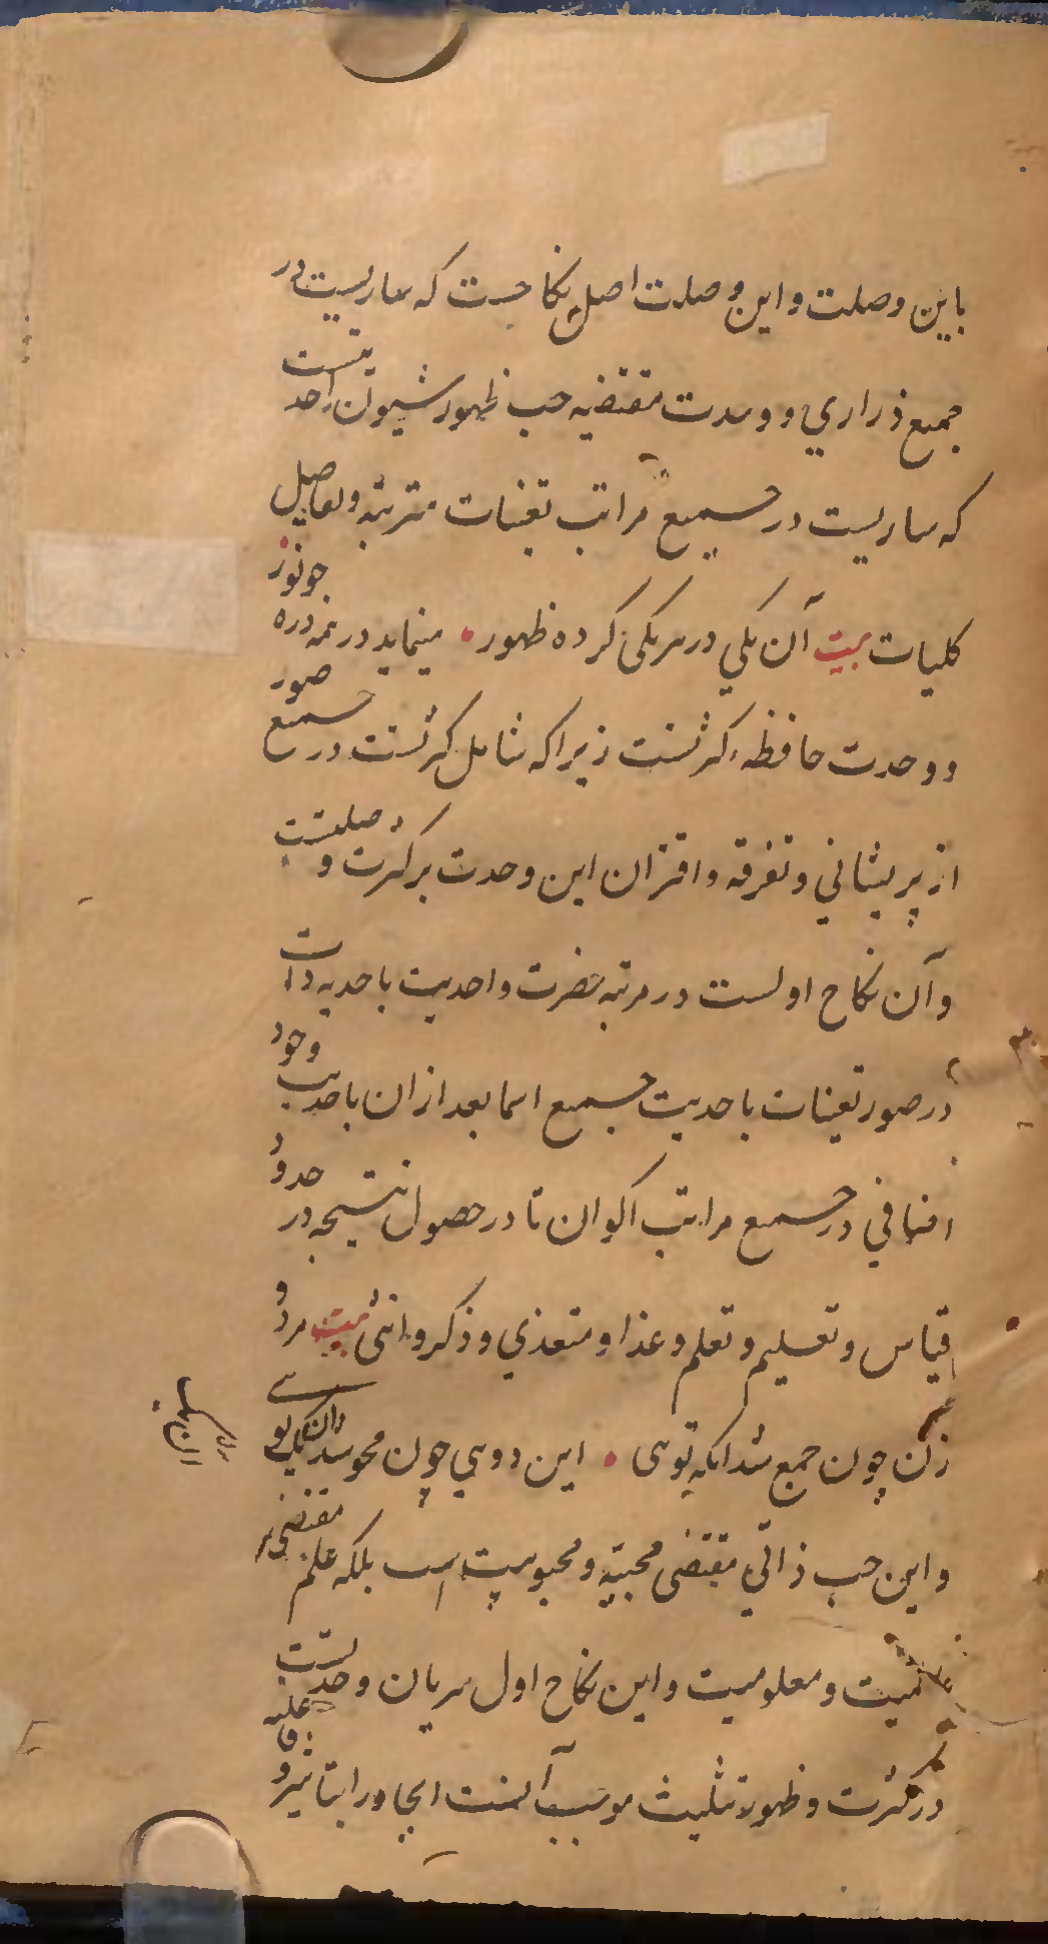 باین وصلت و این وصلت اصل نکاحست که ساریست در
جمیع ذراری و وحدت مقتضیه حب ظهور شیون احدیتست
که ساریست در جمیع مراتب تعینات مترتبه و تفاصیل
کلیات بیت آن یکی در هر یکی کرده ظهور • مینماید در همه ذره چو نور
و وحدت حافظه کثرتست زیرا که شامل کثرتست در جمیع صور
از پریشانی و تفرقه و اقتران این وحدت بر کثرت وصلتست
و آن نکاح اولست در مرتبه حضرت واحدیت باحدیه ذات
در صور تعینات باحدیت جمیع اسما بعد از ان باحدیت وجود
اضافی در جمیع مراتب اکوان تا در حصول نتیجه در حدود
قیاس و تعلیم و تعلم و غذا و متغذی و ذکر و انثی بیت مرد و
زن چون جمع شد انکه توی • این دویی چون محو شد
و این حب ذاتی مقتضی محبیة و محبوبیت است بلکه علم مقتضی
عالمیت و معلومیت و این نکاح اول سریان وحدتست
در کثرت و ظهور تثلیث موجب آنست ایجاد را بتاثیر و